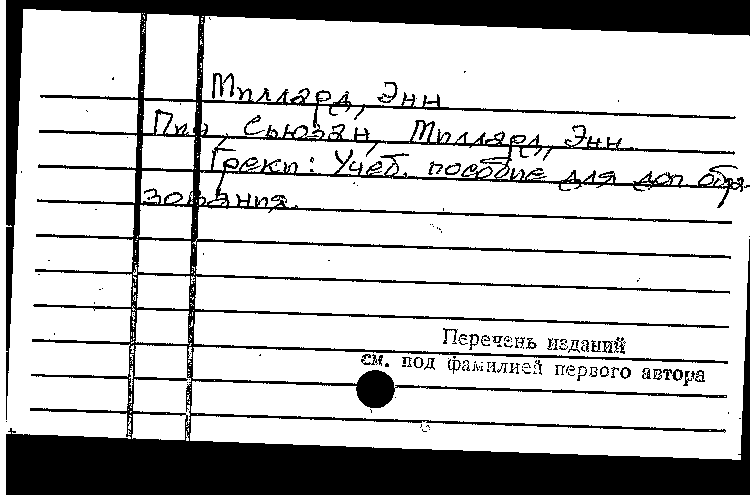 Миллард, Энн
Пич, Сьюзан, Миллард, Энн
Греки: Учеб. пособие для доп обра-
зования.
Перечень изданий
см. под фамилией первого автора